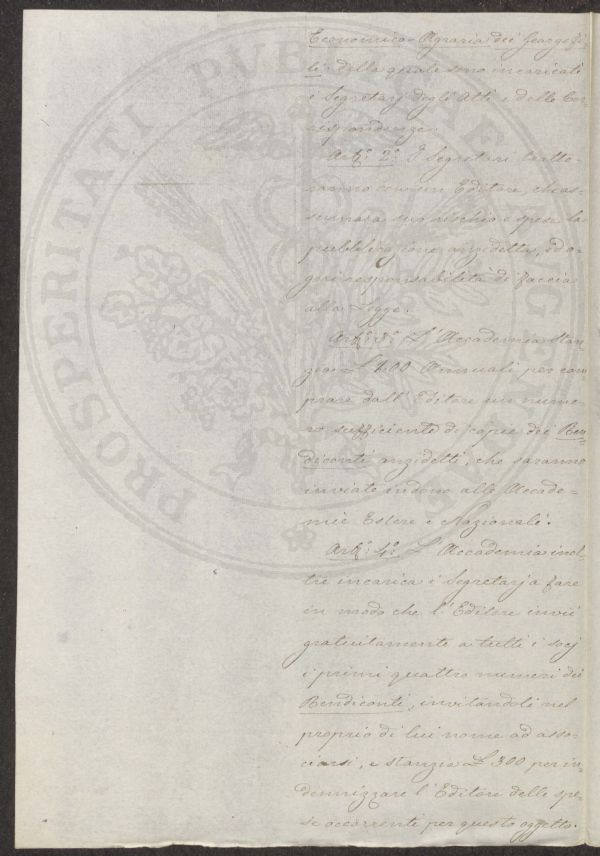 Economico-Agraria dei Georgofi-
li, della quale sono incaricati
i Segretarj degli Atti e delle Cor
rispondenze.
Art.° 2.° I Segretari tratte-
ranno con un Editore, che as-
suma a suo rischio e spese la
pubblicazione anzidetta, ed o-
gni responsabilità di faccia
alla Legge.
Art.° 3.° L'Accademia stan
zia £ 400 Annuali per com
prare dall'Editore un nume-
ro sufficiente di copie dei Ren
diconti anzidetti, che saranno
inviate in dono alle Accade-
mie Estere e Nazionali.
Art.° 4.° L'Accademia inol-
tre incarica i Segretarj a fare
in modo che l'Editore invii
gratuitamente a tutti i socj
i primi quattro numeri dei
Rendiconti, invitandoli nel
proprio di lui nome ad asso-
ciarsi, e stanzia £ 300 per in-
dennizzare l'Editore delle spe-
se occorrenti per questo oggetto.
PROSPERITATI PUBLICAE AUGENDAE